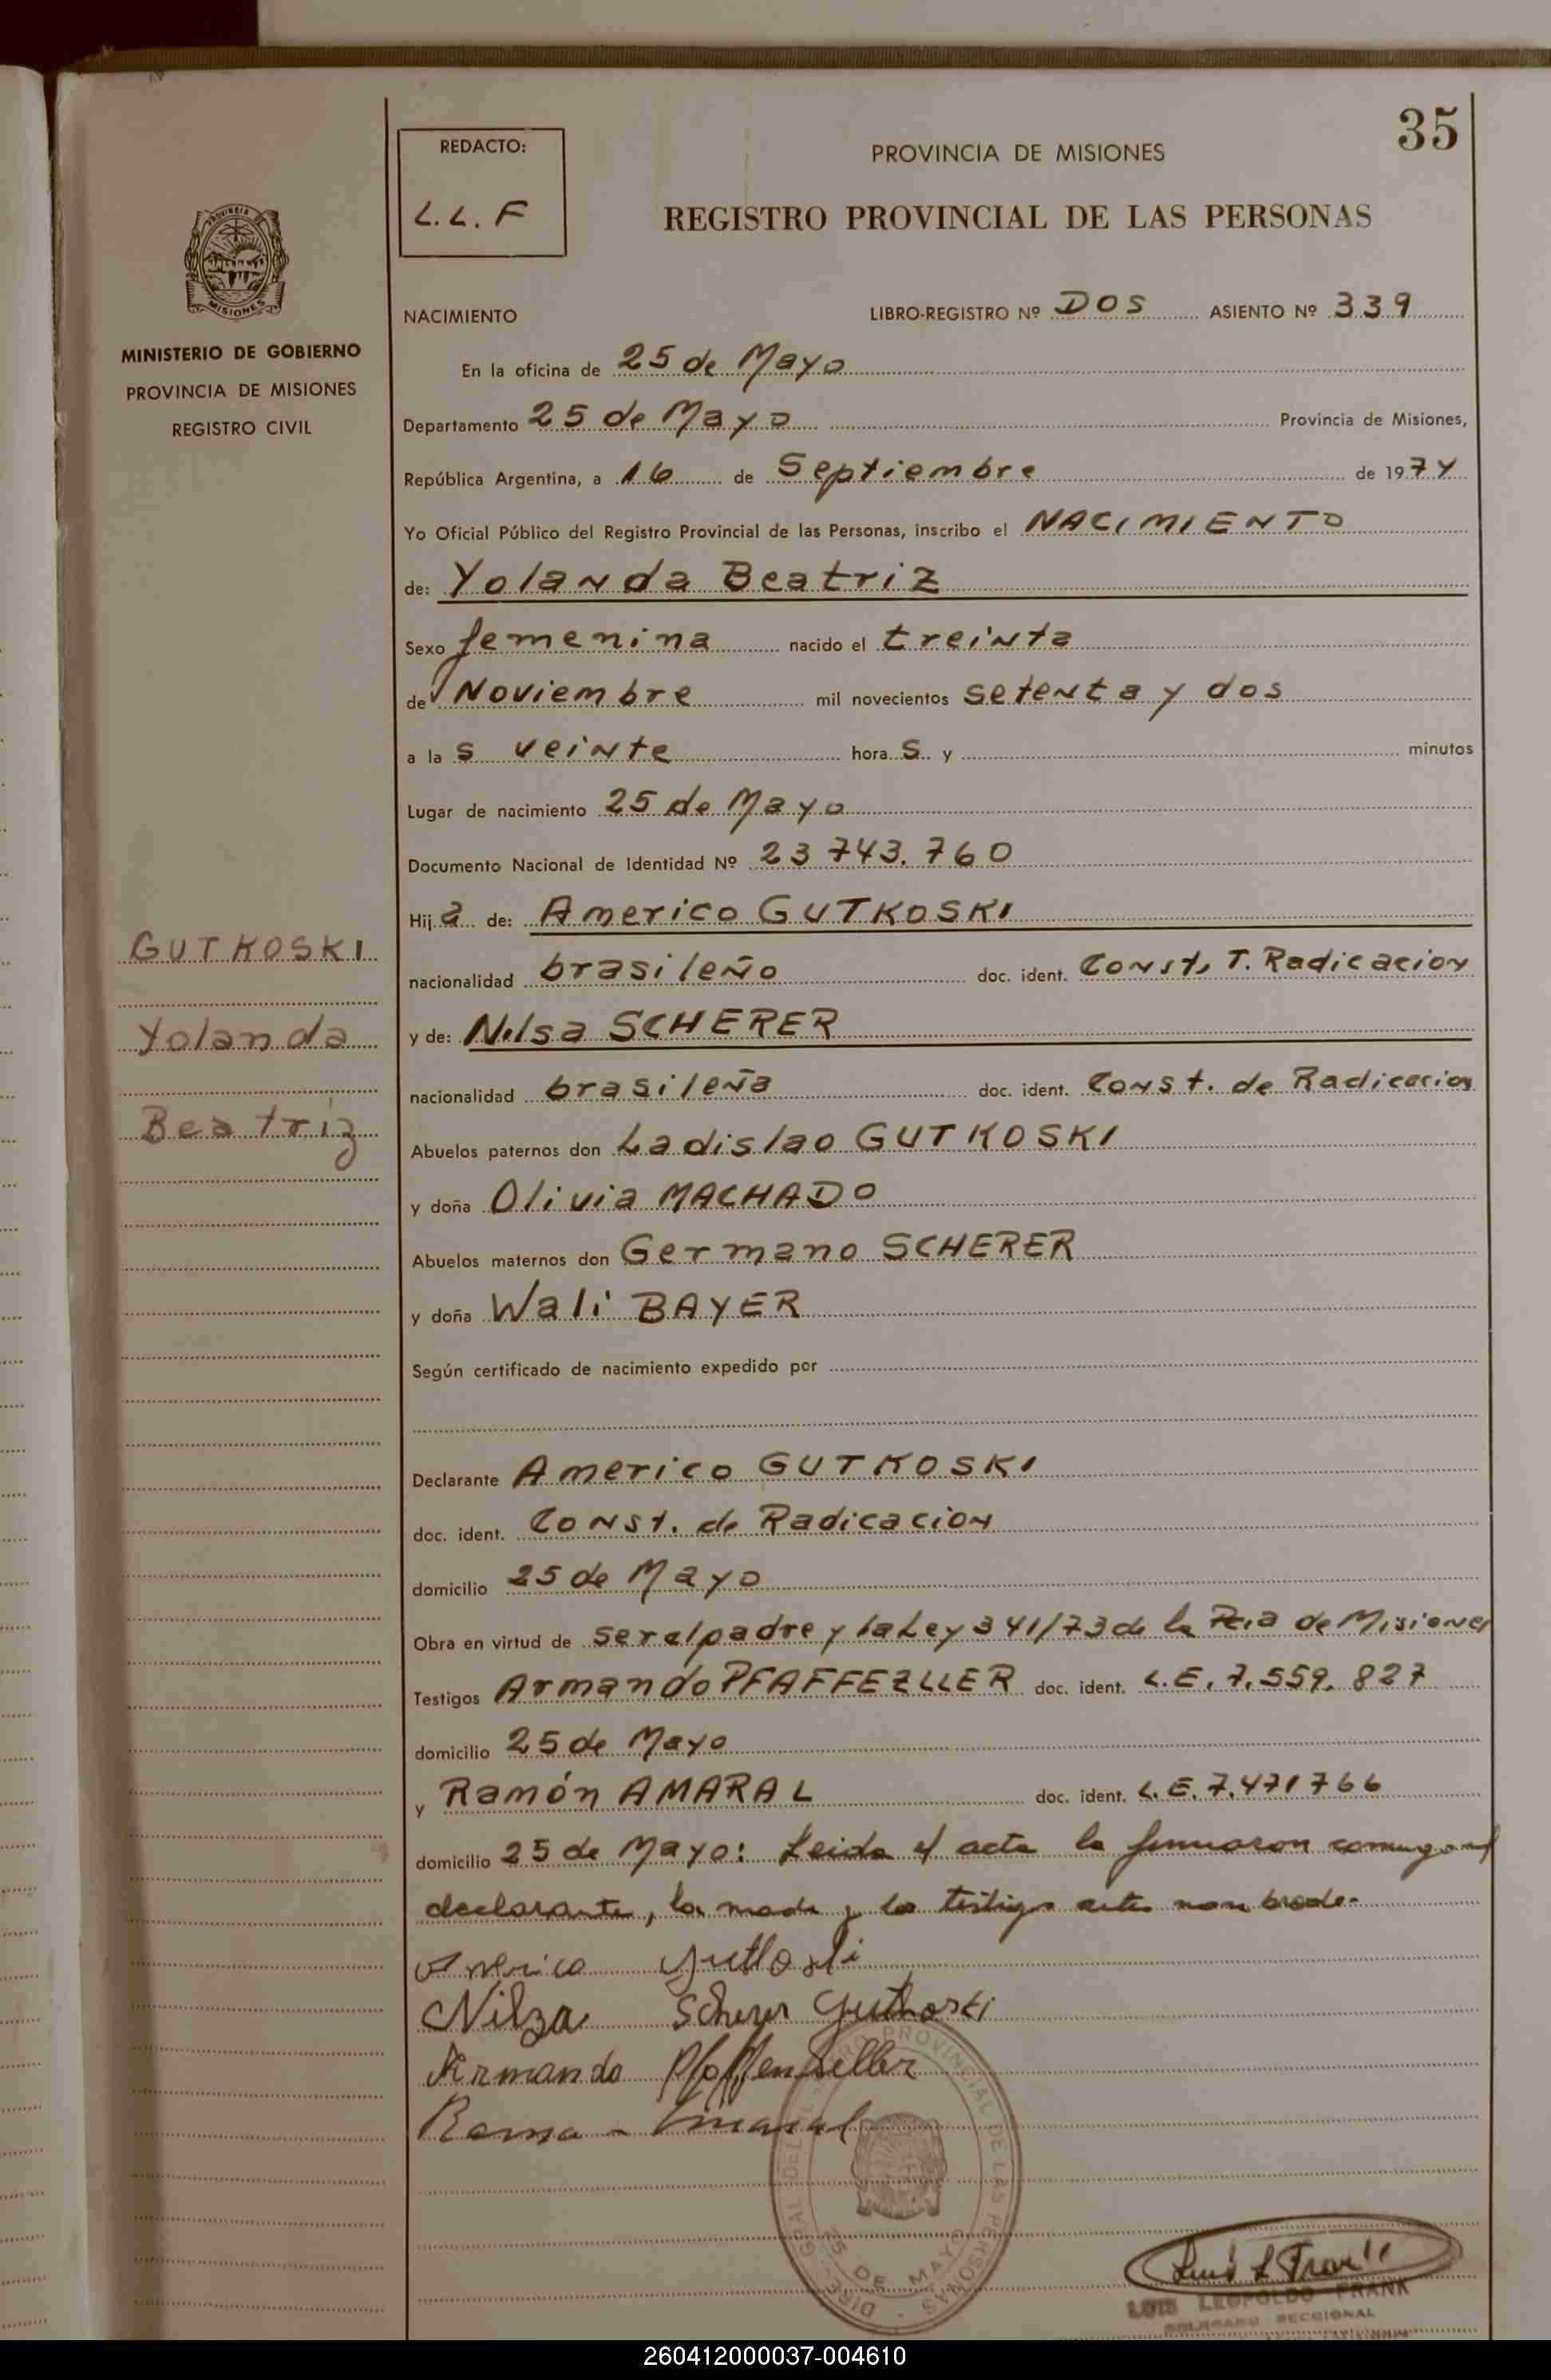 35
REDACTO:
L. L. F
PROVINCIA DE MISIONES
REGISTRO PROVINCIAL DE LAS PERSONAS
PROVINCIA DE
MISIONES
MINISTERIO DE GOBIERNO
PROVINCIA DE MISIONES
REGISTRO CIVIL
GUTKOSKI
Yolanda
Beatriz
NACIMIENTO LIBRO-REGISTRO Nº DOS ASIENTO Nº 339
En la oficina de 25 de Mayo
Departamento 25 de Mayo Provincia de Misiones,
República Argentina, a 16 de Septiembre de 1974
Yo Oficial Público del Registro Provincial de las Personas, inscribo el NACIMIENTO
de: Yolanda Beatriz
Sexo femenina nacido el treinta
de Noviembre mil novecientos setenta y dos
a la s veinte hora s y minutos
Lugar de nacimiento 25 de Mayo
Documento Nacional de Identidad Nº 23 743. 760
Hij a de: Americo GUTKOSKI
nacionalidad brasileño doc. ident. Const. T. Radicacion
y de: Nilsa SCHERER
nacionalidad brasileña doc. ident. Const. de Radicacion
Abuelos paternos don Ladislao GUTKOSKI
y doña Olivia MACHADO
Abuelos maternos don Germano SCHERER
y doña Wali BAYER
Según certificado de nacimiento expedido por
Declarante Americo GUTKOSKI
doc. ident. Const. de Radicacion
domicilio 25 de Mayo
Obra en virtud de ser el padre y la Ley 341/73 de la Pcia de Misiones
Testigos Armando doc. ident. L.E. 7.559.827
domicilio 25 de Mayo
y Ramón AMARAL doc. ident. L.E. 7.471766
domicilio 25 de Mayo: Leida el acta la firmaron conmigo el
declarante, la madre y los testigos antes nombrados
Americo Gutkoski
Nilza Scherer Gutkoski
Armando Pfaffenzeller
Amaral
PROVINCIAL DE LAS PERSONAS
25 DE MAYO
LUIS LEOPOLDO FRANK
DELEGADO SECCIONAL
260412000037-004610